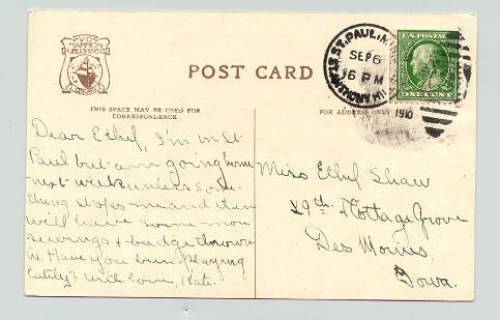 POST CARD
THIS SPACE MAY BE USED FOR
CORRESPONDENCE
FOR ADDRESS ONLY
ST. PAUL, MINN.
SEP 6
6 PM
1910
U.S. POSTAGE
ONE CENT
Dear Ethel, I'm in St
Paul but am going home
next week unless some-
thing stops me and then
will have some more
sewings & bridge thrown
in. Have you been playing
lately? With love, Kate.
Miss Ethel Shaw
29th & Cottage Grove
Des Moines
Iowa.